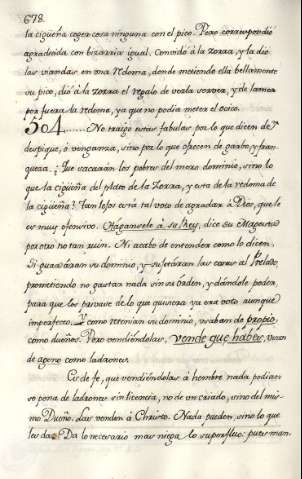 678.
la cigüeña coger cosa ninguna con el pico. Pero correspondió
agradecida con bizarria igual. Convidó à la zorra, y la dió
las viandas en una redoma, donde metiendo ella bellamente
su pico, dió à la zorra el regalo de verla sorver, y de lamer
por fuera la redoma, ya que no podia meter el ocico.
504....... No traigo estas fabulas por lo que dicen de
despique, ò venganza, sino por lo que ofrecen de garbo, y fran-
queza. Que sacarán los pobres del mero dominio, sino lo
que la cigüeña del plato de la Zorra, y esta de la redoma de
la cigüeña? Tan lejos está tal voto de agradar à Dios, que le
es muy ofensivo. Hagansele à su Rey, dice su Magestad
por otro no tan ruin. Ni acabo de entender como lo dicen.
Si guardáran su dominio, y sujetáran las cosas al Prelado,
prometiendo no gastar nada sin su órden, y dándole poder,
para que los privase de lo que quisiera ya era voto aunque
imperfecto. Y como retenian su dominio, usaban de propio
como dueños. Pero vendiéndolas, vende que habes, usan
de ageno como ladrones.
Es de fe, que vendiéndolas à hombre nada podian
so pena de ladrones sin licencia, no de un criado, sino del mis-
mo Dueño. Las venden à Christo. Nada pueden, sino lo que
les da. Da lo necesario mas niega lo superfluo: pues man